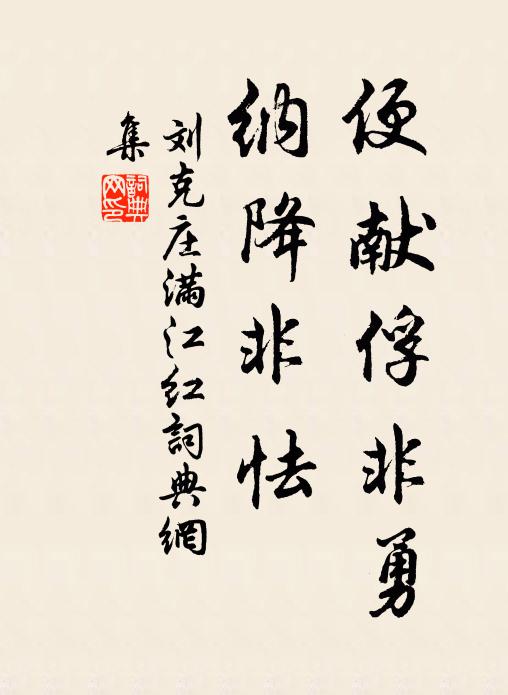 便献俘非勇
纳降非怯
刘克庄满江红詞典網
集
詞典
网印